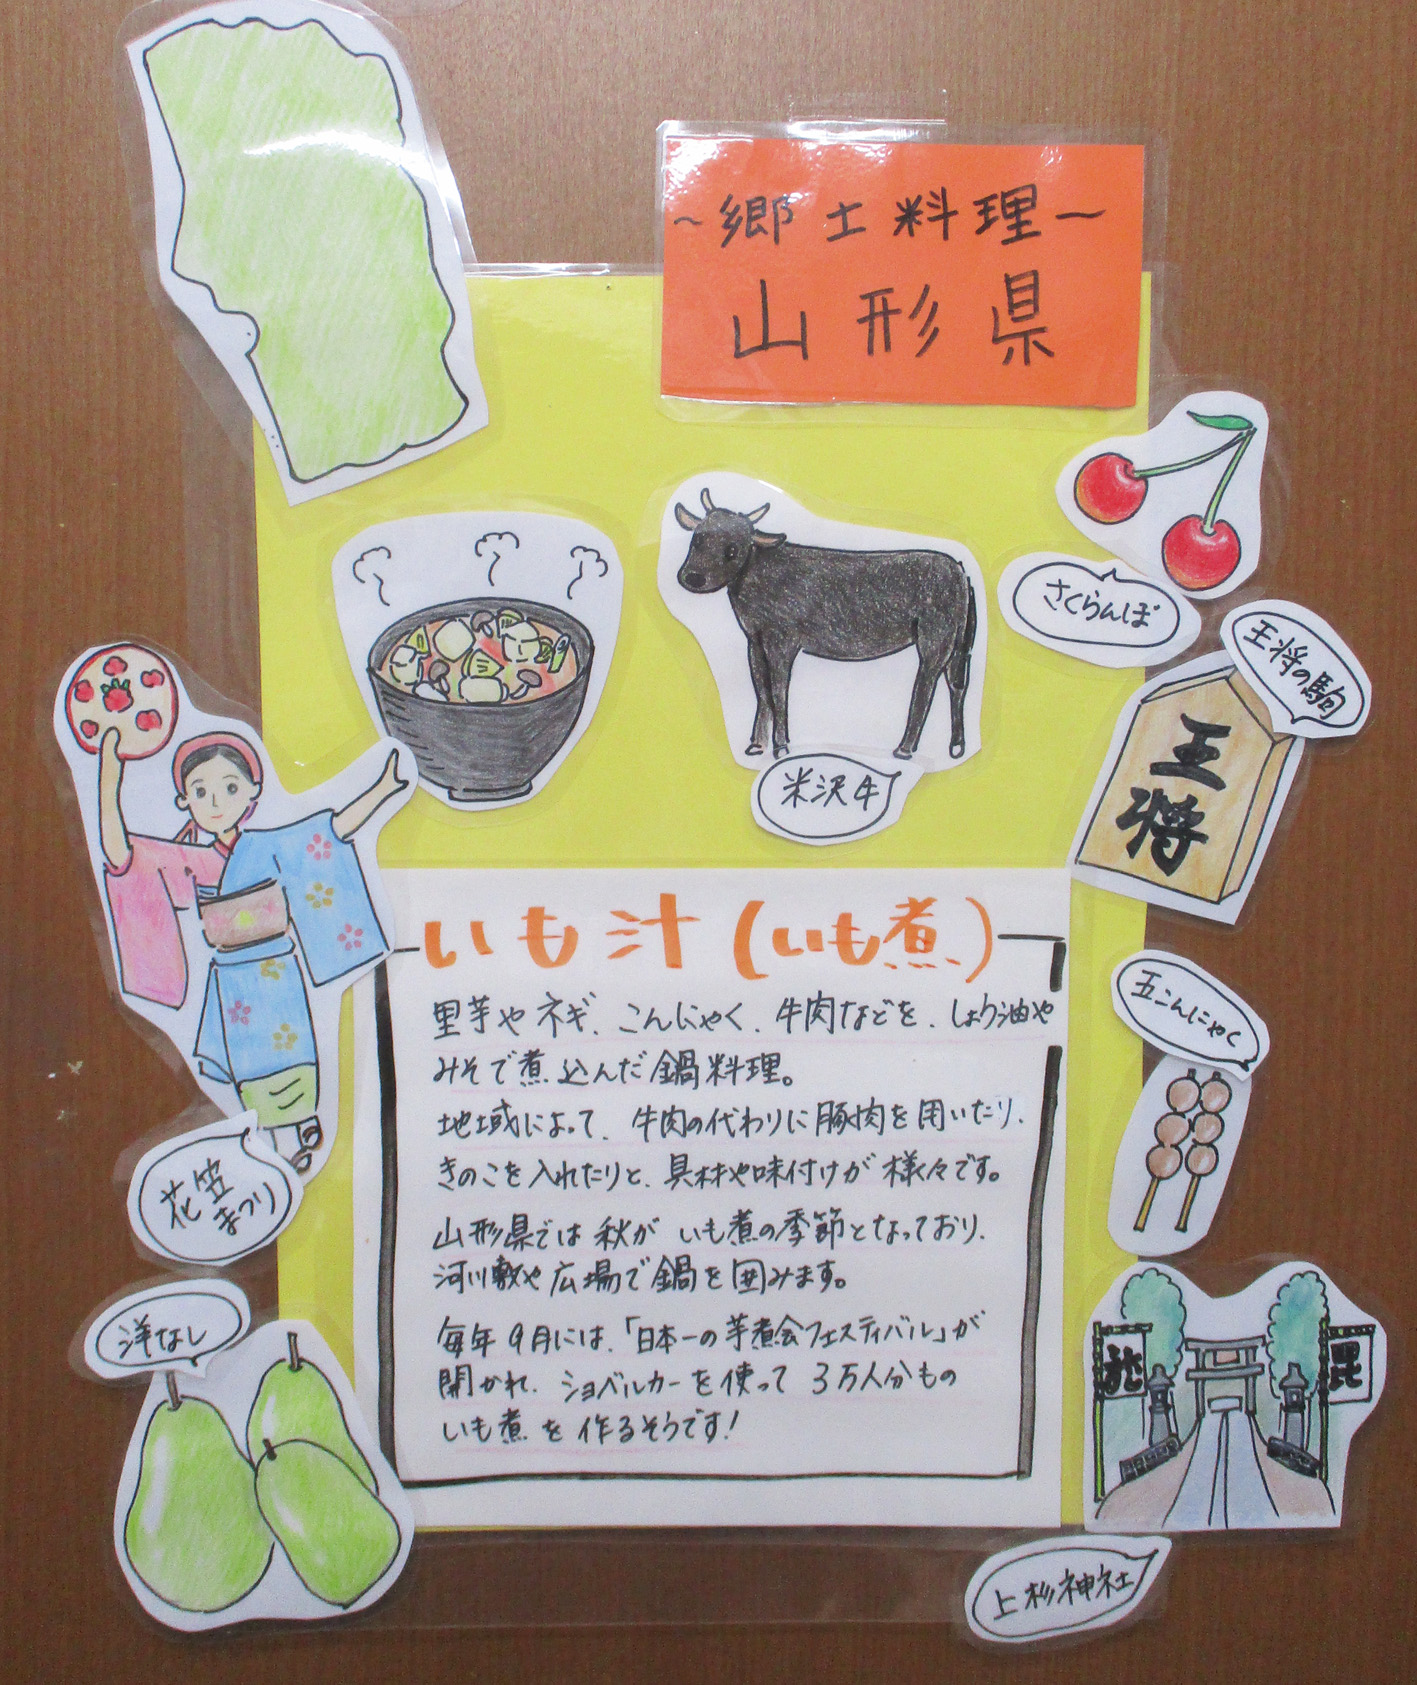 ～郷土料理～
山形県
さくらんぼ
王将の駒
王将
米沢牛
いも汁(いも煮)
里芋やネギ、こんにゃく、牛肉などを、しょうゆ油や
みそで煮込んだ鍋料理。
地域によって、牛肉の代わりに豚肉を用いたり、
きのこを入れたりと、具材や味付けが様々です。
山形県では秋がいも煮の季節となっており、
河川敷や広場で鍋を囲みます。
毎年9月には、「日本一の芋煮会フェスティバル」が
開かれ、ショベルカーを使って3万人分もの
いも煮を作るそうです!
花笠
まつり
洋なし
玉こんにゃく
龍
毘
上杉神社